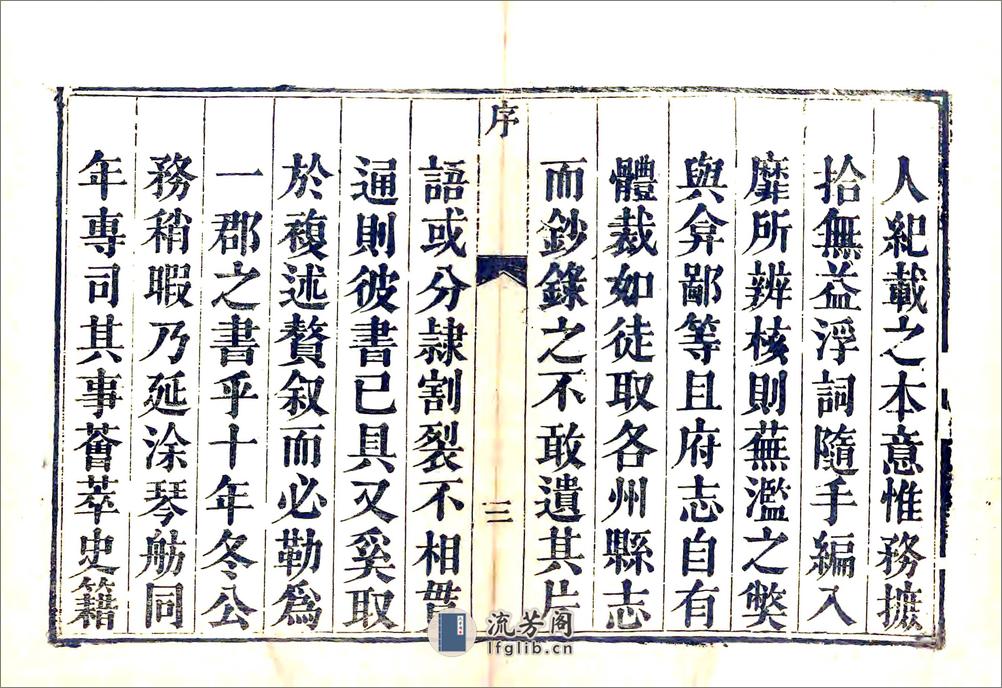 人紀載之本意惟務摭
拾無益浮詞隨手編入
靡所辨核則蕪濫之獘
與弇鄙等且府志自有
體裁如徒取各州縣志
而鈔錄之不敢遺其片
序
三
語或分隷割裂不相貫
通則彼書已具又奚取
於複述贅叙而必勒爲
一郡之書乎十年冬公
務稍暇乃延涂琴舫同
年專司其事薈萃史籍
流芳阁
lfglib.cn